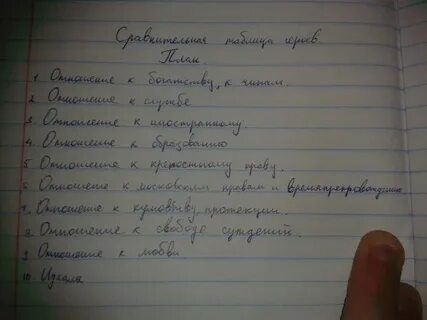 Сравнительная таблица героев
План
1. Отношение к богатству, к чинам.
2. Отношение к службе
3. Отношение к иностранному.
4. Отношение к образованию
5. Отношение к крепостному праву.
6. Отношение к московским нравам и времяпрепровождению
7. Отношение к кумовству, протекции.
8. Отношение к свободе суждений.
9. Отношение к любви
10. Идеалы